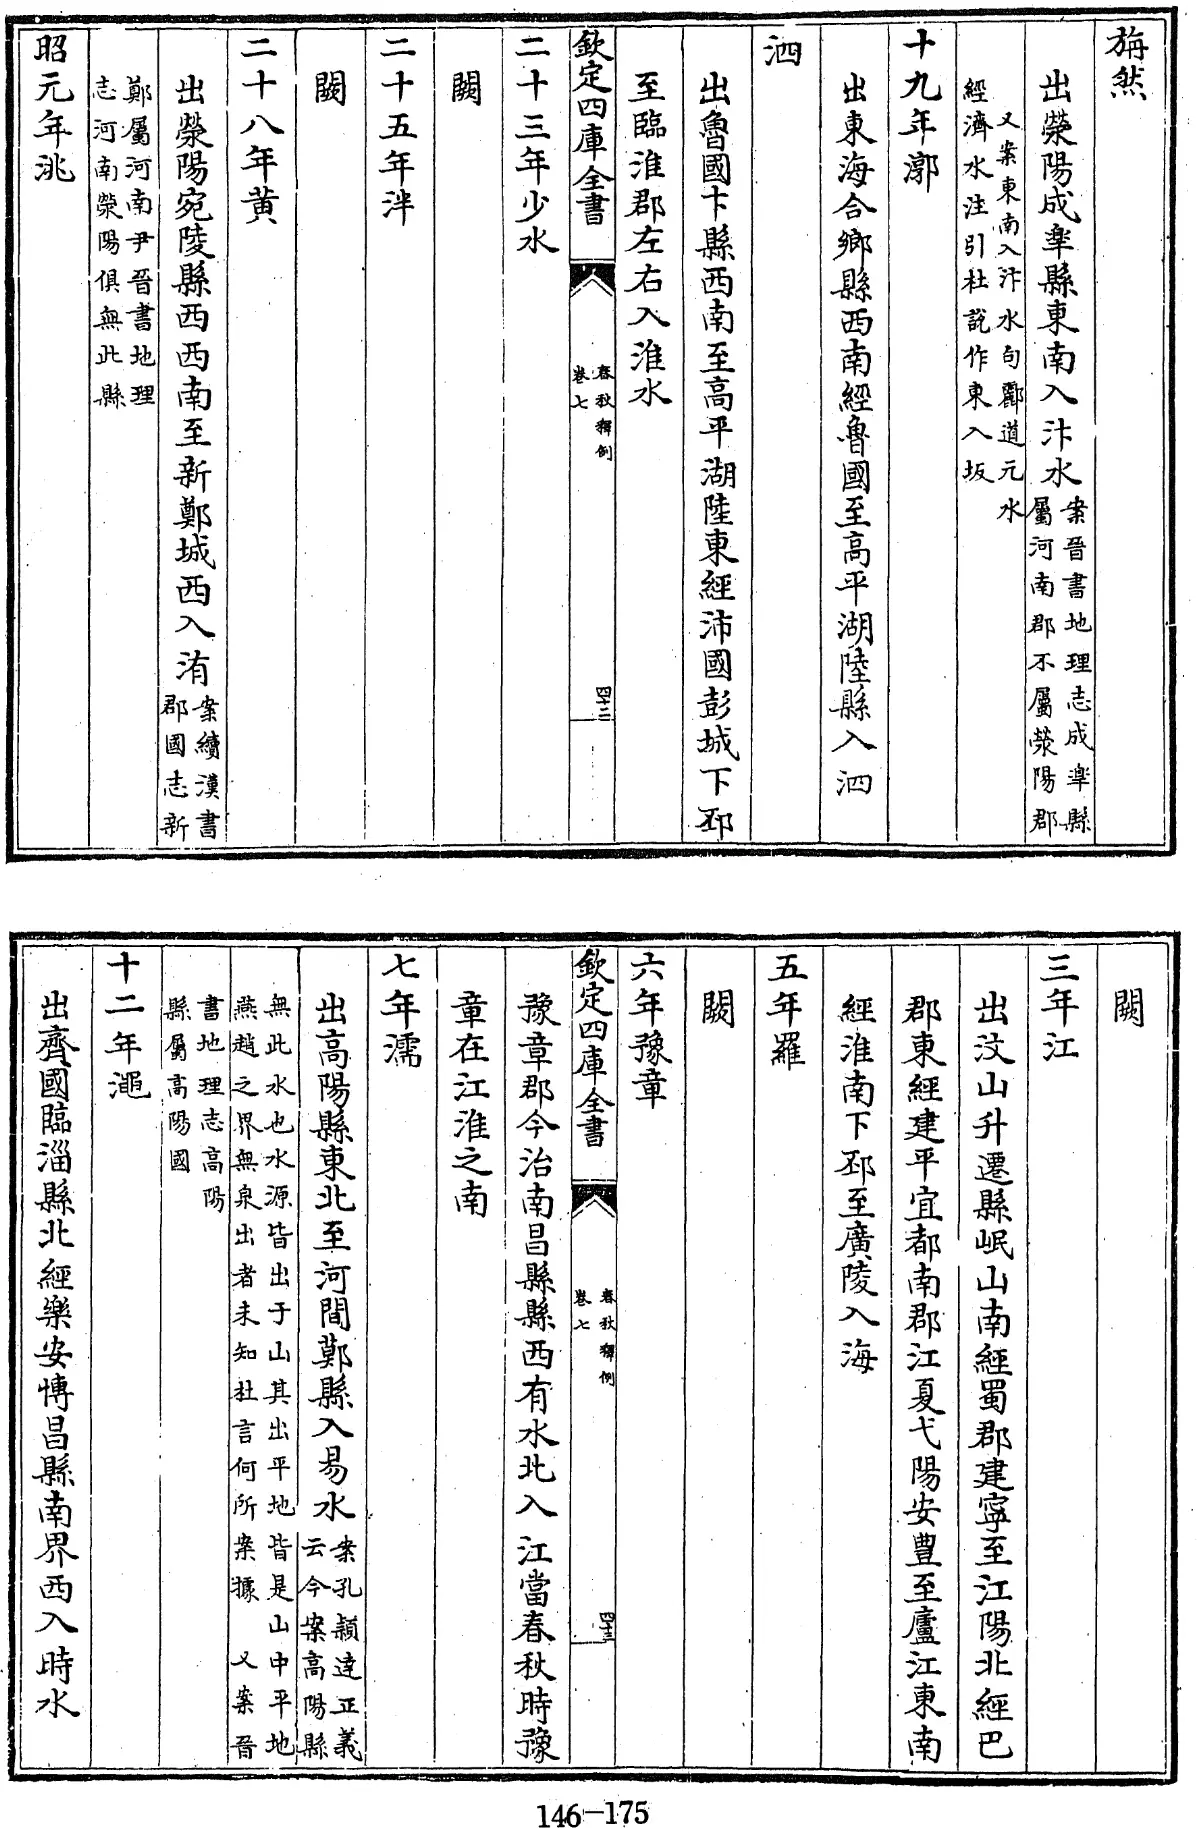 旃然
出滎陽成皐縣東南入汴水
案晉書地理志成皐縣
屬河南郡不屬滎陽郡
又案東南入汴水句酈道元水
經濟水注引杜說作東入坂
十九年漷
出東海合鄉縣西南經魯國至高平湖陸縣入泗
泗
出魯國卞縣西南至高平湖陸東經沛國彭城下邳
至臨淮郡左右入淮水
欽定四庫全書
春秋釋例
卷七
四十二
二十三年少水
闕
二十五年泮
闕
二十八年黄
出滎陽宛陵縣西西南至新鄭城西入洧
案續漢書
郡國志新
鄭屬河南尹晉書地理
志河南滎陽俱無此縣
昭元年洮
闕
三年江
出汶山升遷縣岷山南經蜀郡建寧至江陽北經巴
郡東經建平宜都南郡江夏弋陽安豐至廬江東南
經淮南下邳至廣陵入海
五年羅
闕
六年豫章
欽定四庫全書
春秋釋例
卷七
四十三
豫章郡今治南昌縣縣西有水北入江當春秋時豫
章在江淮之南
七年濡
出高陽縣東北至河間鄚縣入易水
案孔穎達正義
云今案高陽縣
無此水也水源皆出于山其出平地皆是山中平地
燕趙之界無泉出者未知杜言何所案據 又案晉
書地理志高陽
縣屬高陽國
十二年澠
出齊國臨淄縣北經樂安博昌縣南界西入時水
146-175